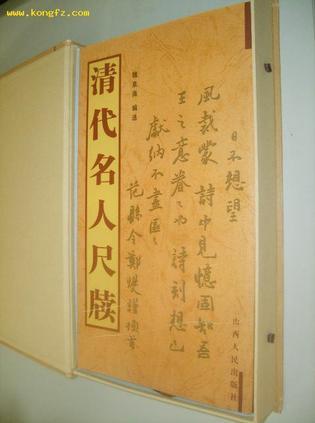 www.kongfz.com
清代名人尺牍
编选
日不想望
风裁蒙詩中見憶固知吾
王之意眷〻也詩刻想已
獻納不盡區〻
范縣令鄭燮
山西人民出版社